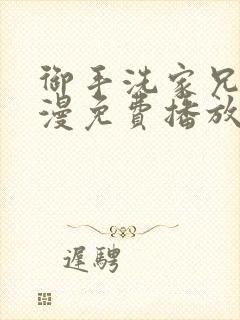 御手洗家兄
漫免費播放
遲騁